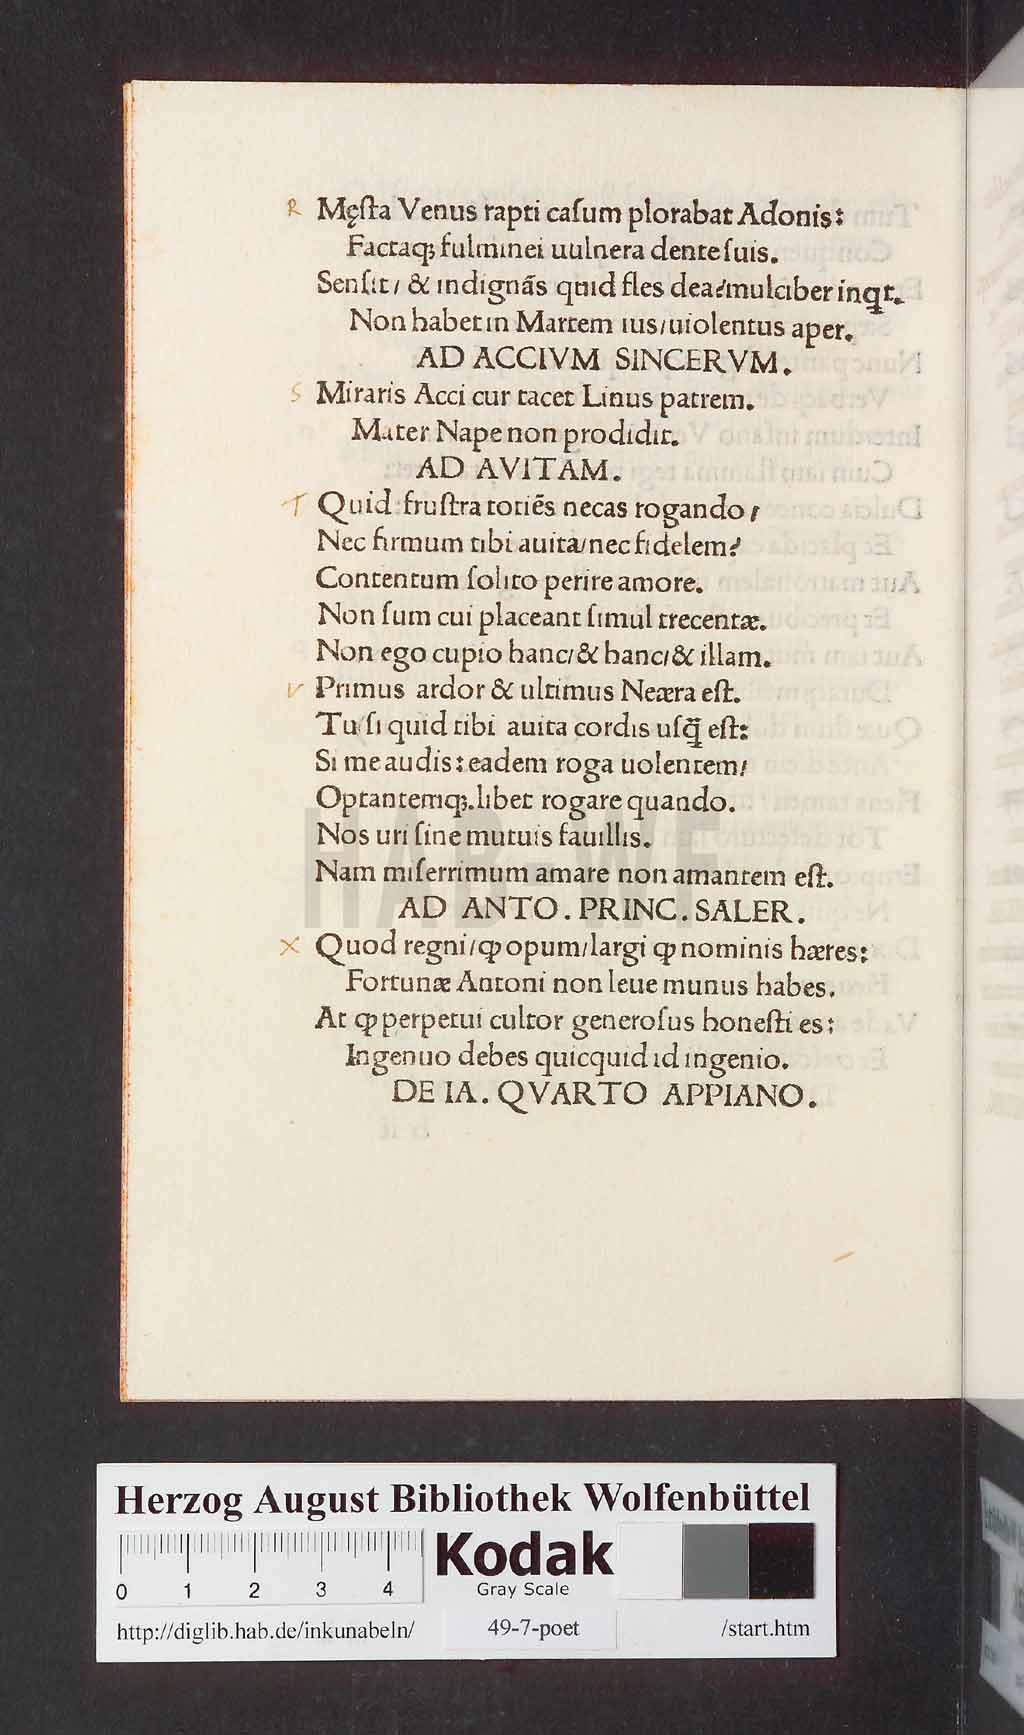 R Męſta Venus rapti caſum plorabat Adonis:
Factaqꝫ fulminei uulnera dente ſuis.
Senſit/ & indignãs quid fles dea? mulciber inqt.
Non habet in Martem ius/uiolentus aper.
AD ACCIVM SINCERVM.
S Miraris Acci cur tacet Linus patrem.
Mater Nape non prodidit.
AD AVITAM.
T Quid fruſtra totiẽs necas rogando/
Nec firmum tibi auita/nec fidelem?
Contentum ſolito perire amore.
Non ſum cui placeant ſimul trecentæ.
Non ego cupio hanc/& hanc/& illam.
V Primus ardor & ultimus Neæra eſt.
Tu ſi quid tibi auita cordis uſq̃ eſt:
Si me audis: eadem roga uolentem/
Optantemqꝫ.libet rogare quando.
Nos uri ſine mutuis fauillis.
Nam miſerrimum amare non amantem eſt.
AD ANTO. PRINC. SALER.
X Quod regni/ꝙ opum/largi ꝙ nominis hæres:
Fortunæ Antoni non leue munus habes.
At ꝙ perpetui cultor generoſus honeſti es:
Ingenuo debes quicquid id ingenio.
DE IA. QVARTO APPIANO.
HAB-WF
Herzog August Bibliothek Wolfenbüttel
0 1 2 3 4
Kodak
Gray Scale
http://diglib.hab.de/inkunabeln/ 49-7-poet /start.htm